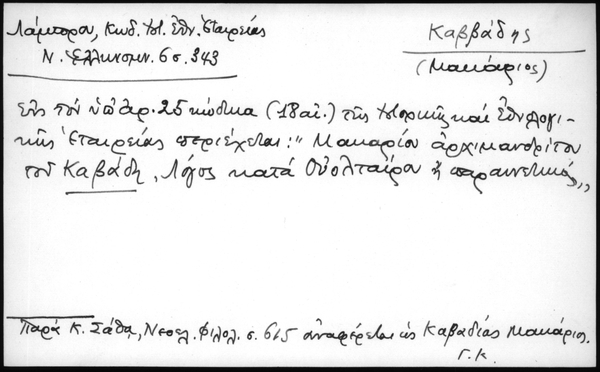 Λάμπρου, Κωδ. Ἱστ. Ἐθν. Ἑταιρείας
Ν. Ἑλληνομν. 6 σ. 343
Καββάδης
(Μακάριος)
εἰς τὸν ὑπ' ἀρ. 25 κώδικα (18 αἰ.) τῆς Ἱστορικῆς καὶ Ἐθνολογι-
κῆς Ἑταιρείας περιέχεται: "Μακαρίου ἀρχιμανδρίτου
τοῦ Καβάδη, Λόγος κατὰ Οὐολταίρου ἢ παραινετικός,,
Παρὰ Κ. Σάθᾳ, Νεοελ. Φιλολ. σ. 615 ἀναφέρεται ὡς Καβαδίας Μακάριος.
Γ. Κ.